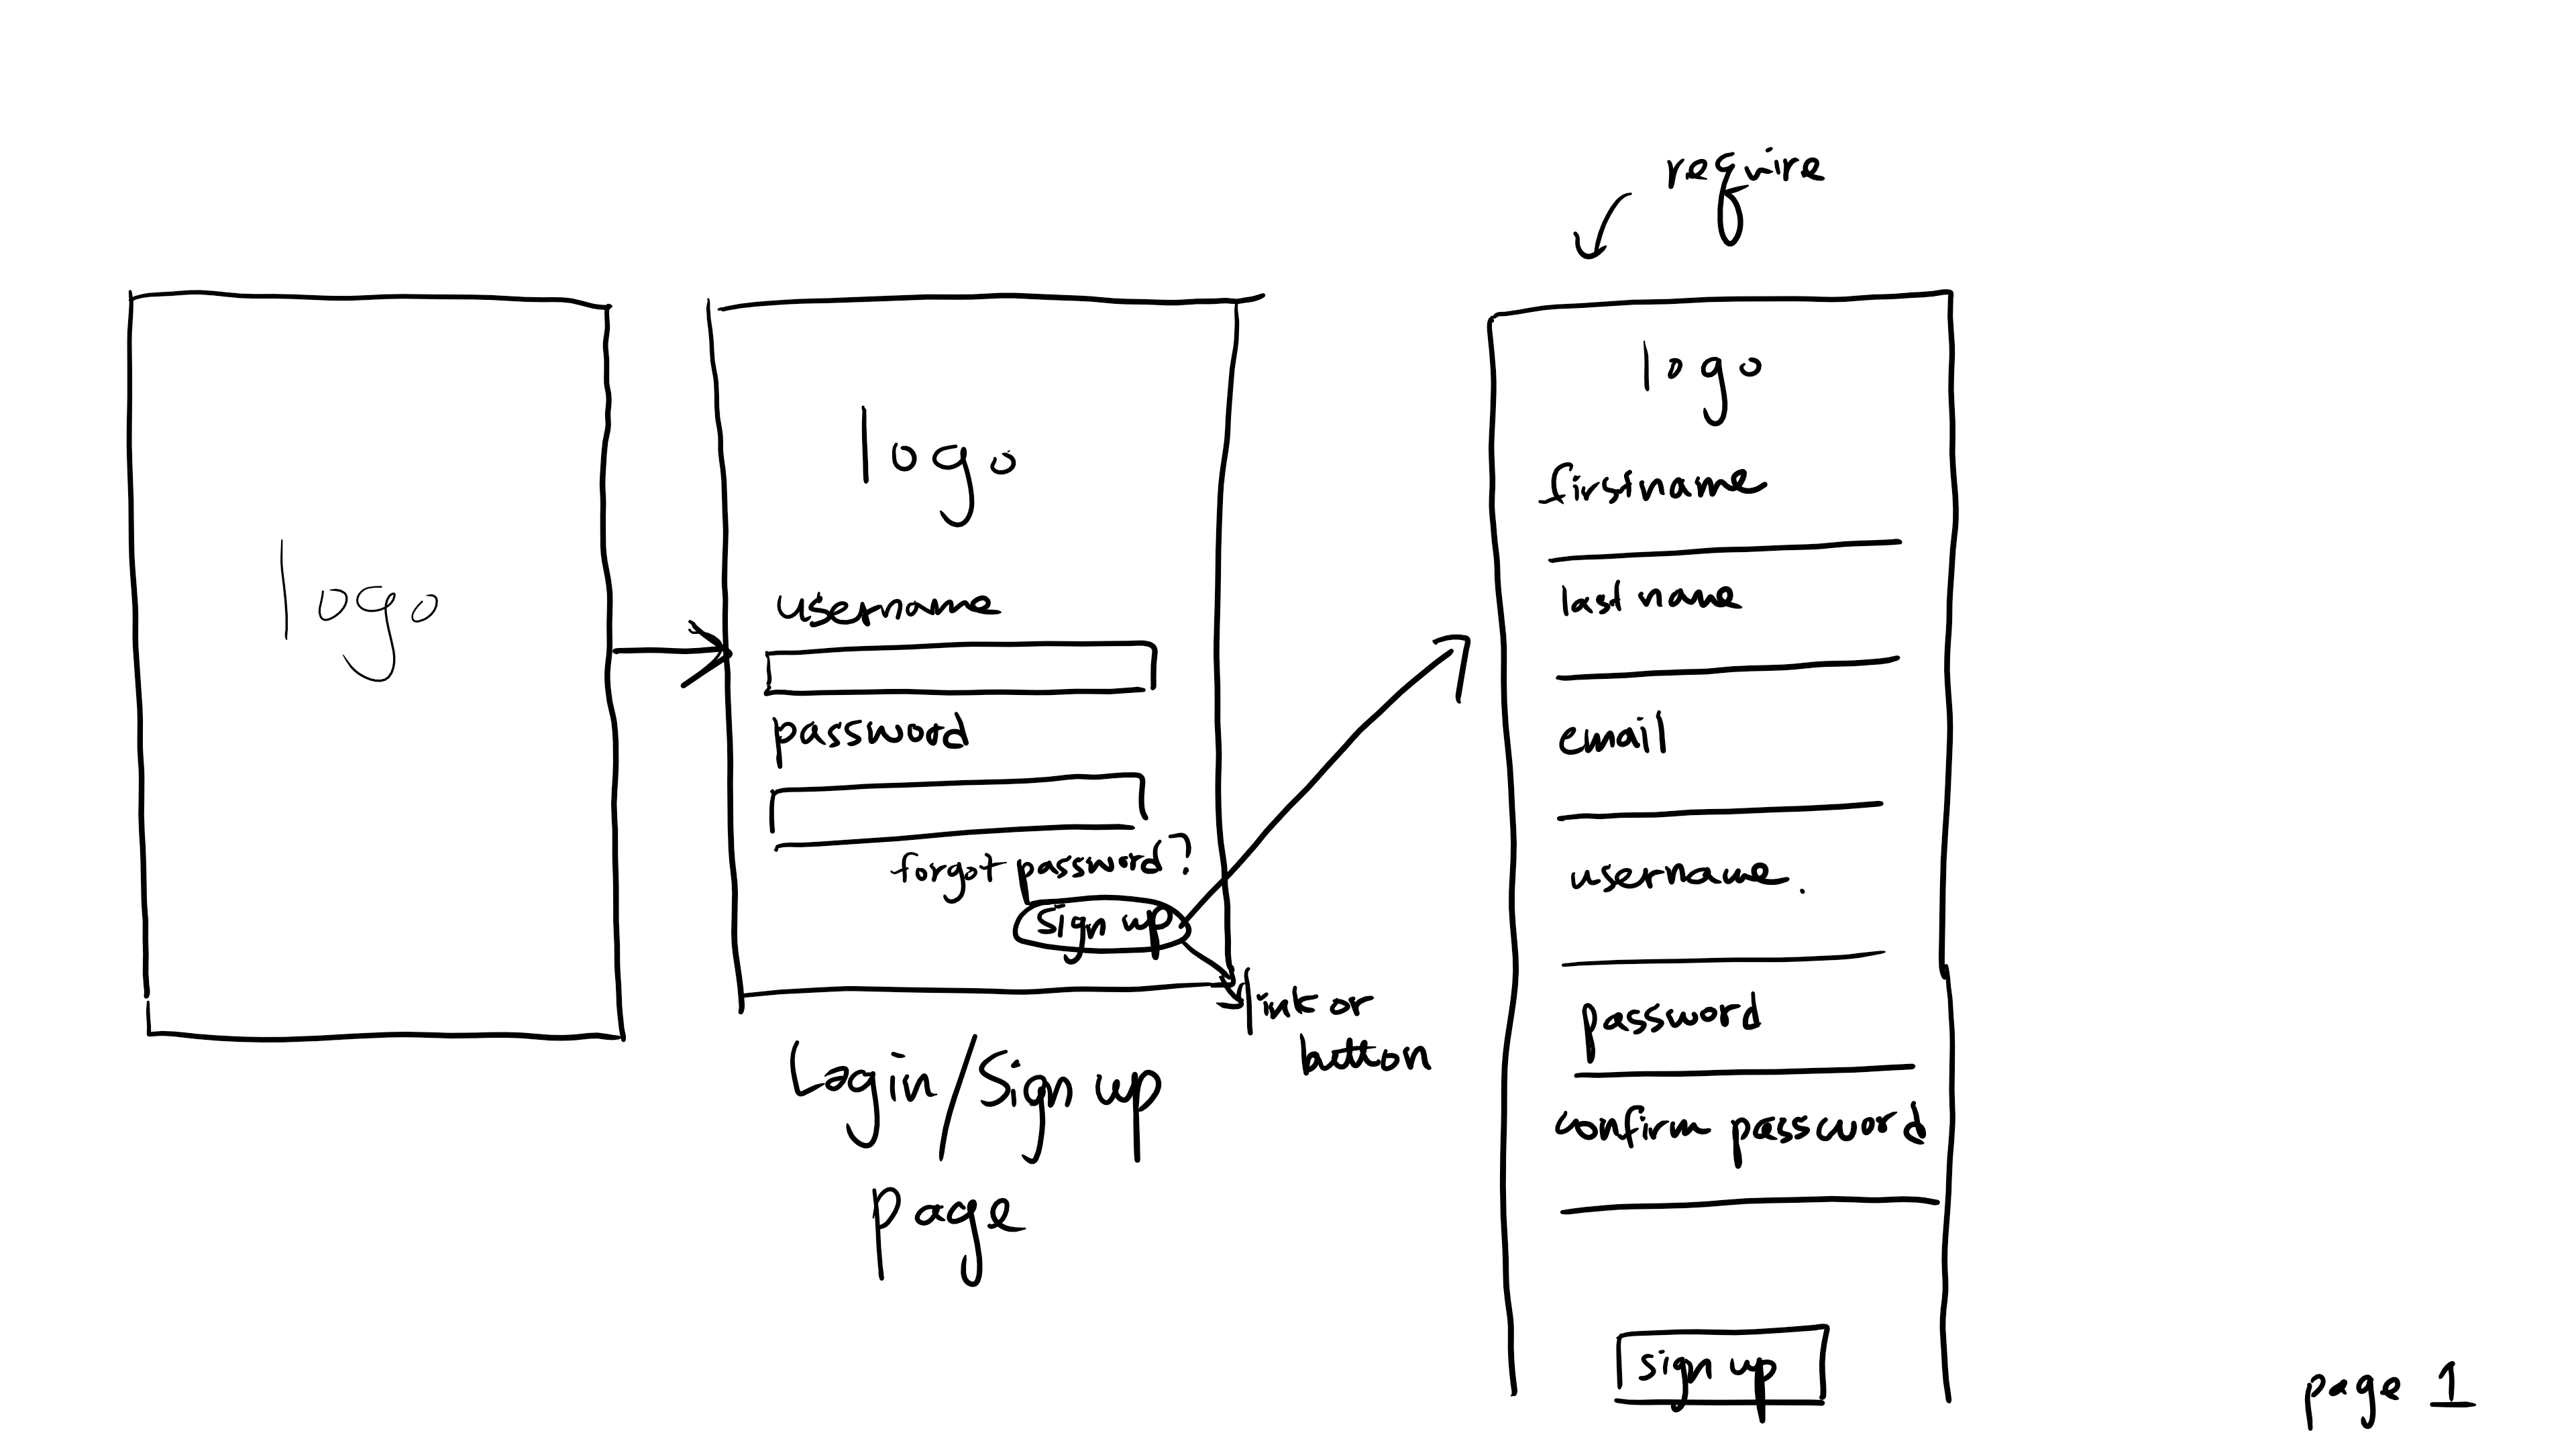 logo
logo
username
password
forgot password?
sign up
link or
button
Login/Sign up
page
require
logo
firstname
last name
email
username.
password
confirm password
sign up
page 1